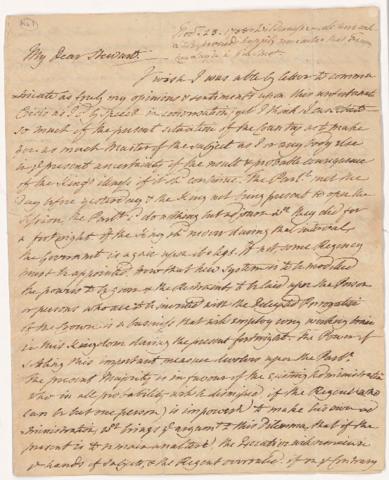 No. 1
Nov. 23. 1788
My Dear Stewart.
I wish I was able by letter to commu
nicate as fully my opinions & sentiments upon this important
Crisis as I cd. by Speech in conversation, yet I think I can
so much of the present situation of the Country as to make
you as much Master of the subject as I or any body else
in ye present uncertainty of the result & probable consequence
of the King's illness if it shd. continue. The Parlt. met the
day before yesterday & the King not being present to open the
Session the Parlt. cd. do nothing but adjourn wh. they did for
a fortnight if the King shd. recover during that interval
the Governmt. is again upon its legs. If not, some Regency
must be appointed. How that New System is to be modelled
the powers to be given & the restraints to be laid upon the Person
or persons who are to be invested with the Delegated Prerogative
of the Crown is a business that will employ every thinking brain
in this Kingdom during the present fortnight. The Power of
settling this important measure devolves upon the Parlt.
The present Majority is in favour of the existing Administration
who in all probability will be dismissed if the Regent (who
can be but one person) is impowered to make his own ad
ministration, wh. brings ye argumt. to this Dilemma, that if the
present is to remain unalter'd, the Executive will
& hands of Subjects, & the Regent overruled. if on ye Contrary